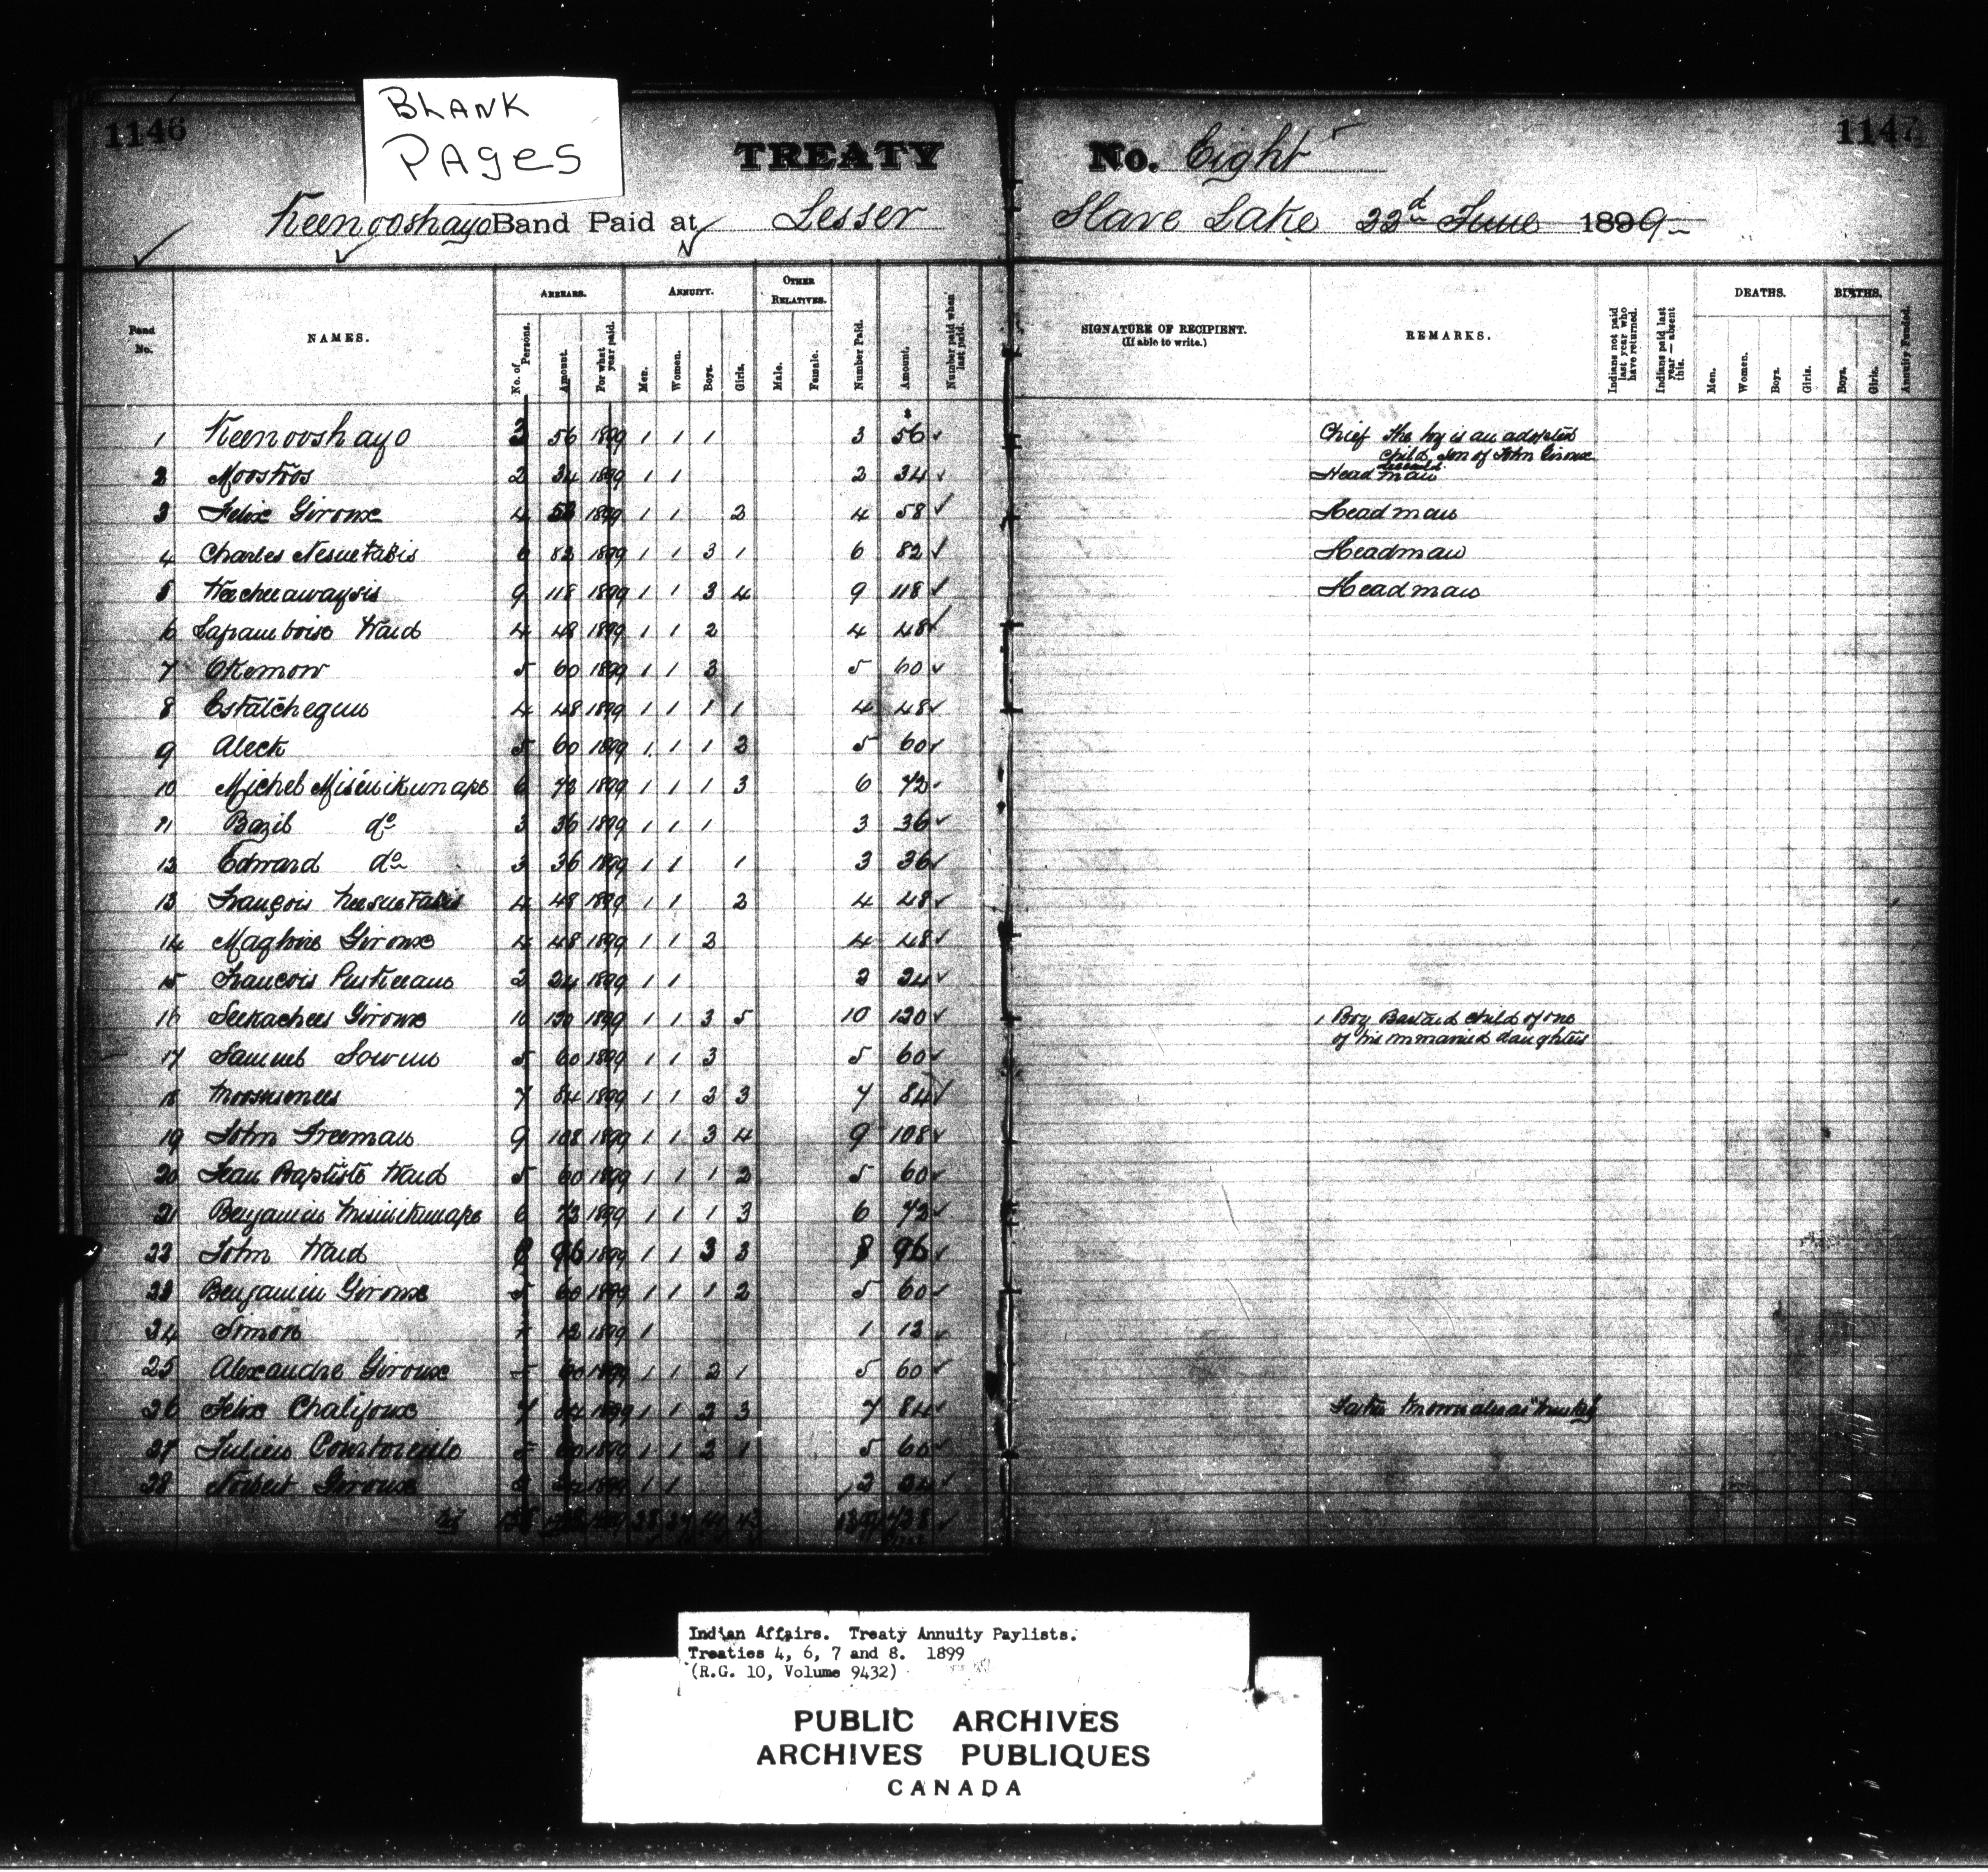 BLANK
PAGES
1146
1147
TREATY No. Eight
Keenooshayo Band Paid at Lesser Slave Lake 22d June 1899
Band No.
NAMES.
ARREARS.
No. of Persons.
Amount.
For what year paid.
ANNUITY.
Men.
Women.
Boys.
Girls.
OTHER RELATIVES.
Male.
Female.
Number Paid.
Amount.
Number paid when last paid.
SIGNATURE OF RECIPIENT.
(If able to write.)
REMARKS.
Indians not paid last year who have returned.
Indians paid last year — absent this.
DEATHS.
Men.
Women.
Boys.
Girls.
BIRTHS.
Boys.
Girls.
Annuity Funded.
1 Keenooshayo 3 56 1899 1 1 1 3 56 Chief The boy is an adopted
child, son of John Giroux
deceased
2 Moostoos 2 34 1899 1 1 2 34 Headman
3 Felix Giroux 4 58 1899 1 1 2 4 58 Headman
4 Charles Nesuetasis 6 82 1899 1 1 3 1 6 82 Headman
5 Weecheewaysis 9 118 1899 1 1 3 4 9 118 Headman
6 Waid 4 48 1899 1 1 2 4 48
7 Okemow 5 60 1899 1 1 3 5 60
8 4 48 1899 1 1 1 1 4 48
9 Aleck 5 60 1899 1 1 1 2 5 60
10 Michel Misinikunape 6 72 1899 1 1 1 3 6 72
11 Bazil do 3 36 1899 1 1 1 3 36
12 Edward do 3 36 1899 1 1 1 3 36
13 François Neesuetasis 4 48 1899 1 1 2 4 48
14 Magloire Giroux 4 48 1899 1 1 2 4 48
15 Francois 2 24 1899 1 1 2 24
16 Seekachees Giroux 10 120 1899 1 1 3 5 10 120 1 Boy Bastard child of one
of his unmarried daughters
17 Samuel Sowun 5 60 1899 1 1 3 5 60
18 7 84 1899 1 1 2 3 7 84
19 John Freeman 9 108 1899 1 1 3 4 9 108
20 Jean Baptiste Waid 5 60 1899 1 1 1 2 5 60
21 Benjamin Misinikunape 6 72 1899 1 1 1 3 6 72
22 John Waid 8 96 1899 1 1 3 3 8 96
23 Benjamin Giroux 5 60 1899 1 1 1 2 5 60
24 Simon 1 12 1899 1 1 12
25 Alexandre Giroux 5 60 1899 1 1 2 1 5 60
26 Felix Chalifoux 7 84 1899 1 1 2 3 7 84 known also as
27 Julien Courtoreille 5 60 1899 1 1 2 1 5 60
28 Norbert Giroux 2 24 1899 1 1 2 24
Indian Affairs. Treaty Annuity Paylists.
Treaties 4, 6, 7 and 8. 1899
(R.G. 10, Volume 9432)
PUBLIC ARCHIVES
ARCHIVES PUBLIQUES
CANADA